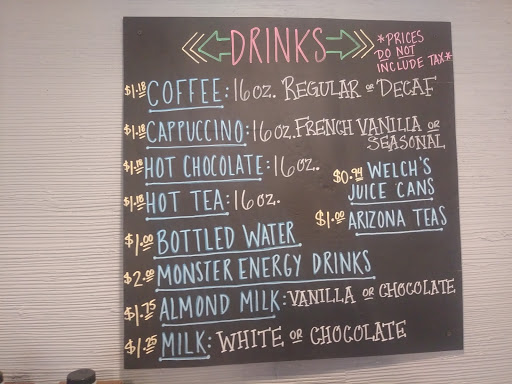 DRINKS
*PRICES
DO NOT
INCLUDE TAX*
$1.18 COFFEE: 16 oz. REGULAR or DECAF
$1.18 CAPPUCCINO: 16 oz. FRENCH VANILLA or
SEASONAL
$1.18 HOT CHOCOLATE: 16 oz.
$0.94 WELCH'S
JUICE CANS
$1.18 HOT TEA: 16 oz.
$1.00 ARIZONA TEAS
$1.00 BOTTLED WATER
$2.00 MONSTER ENERGY DRINKS
$1.75 ALMOND MILK: VANILLA or CHOCOLATE
$1.25 MILK: WHITE or CHOCOLATE